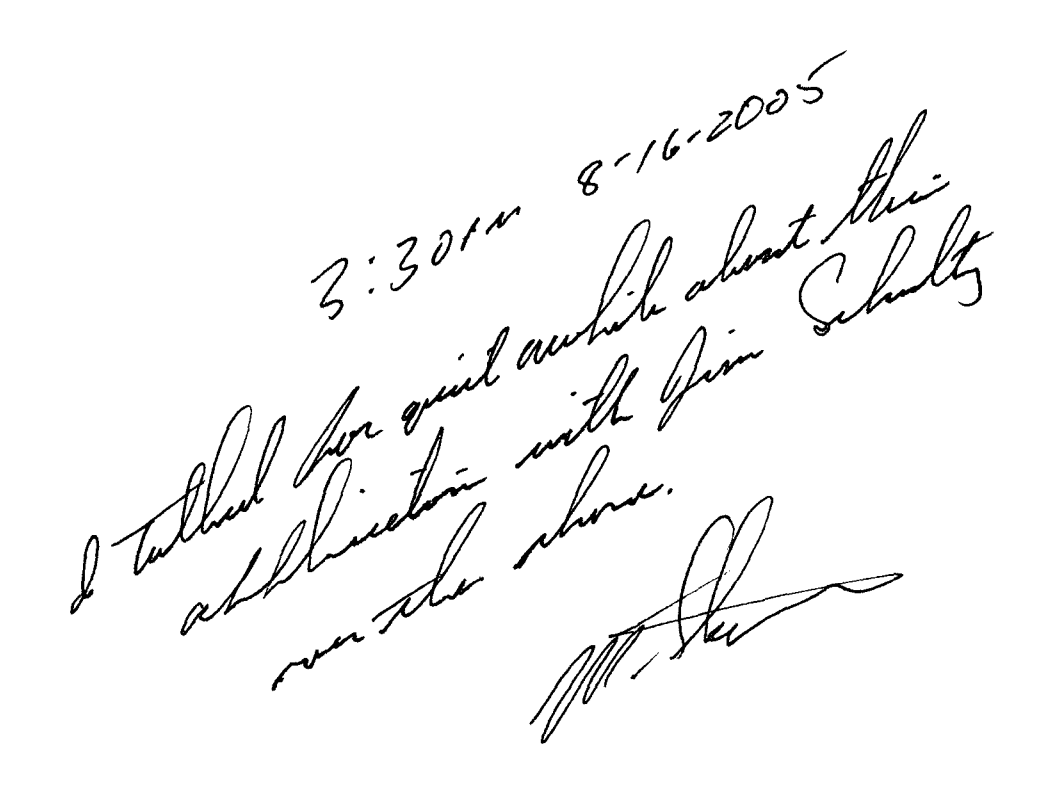 3:30PM 8-16-2005
I talked for quit awhile about this
application with Jim Schultz
over the phone.